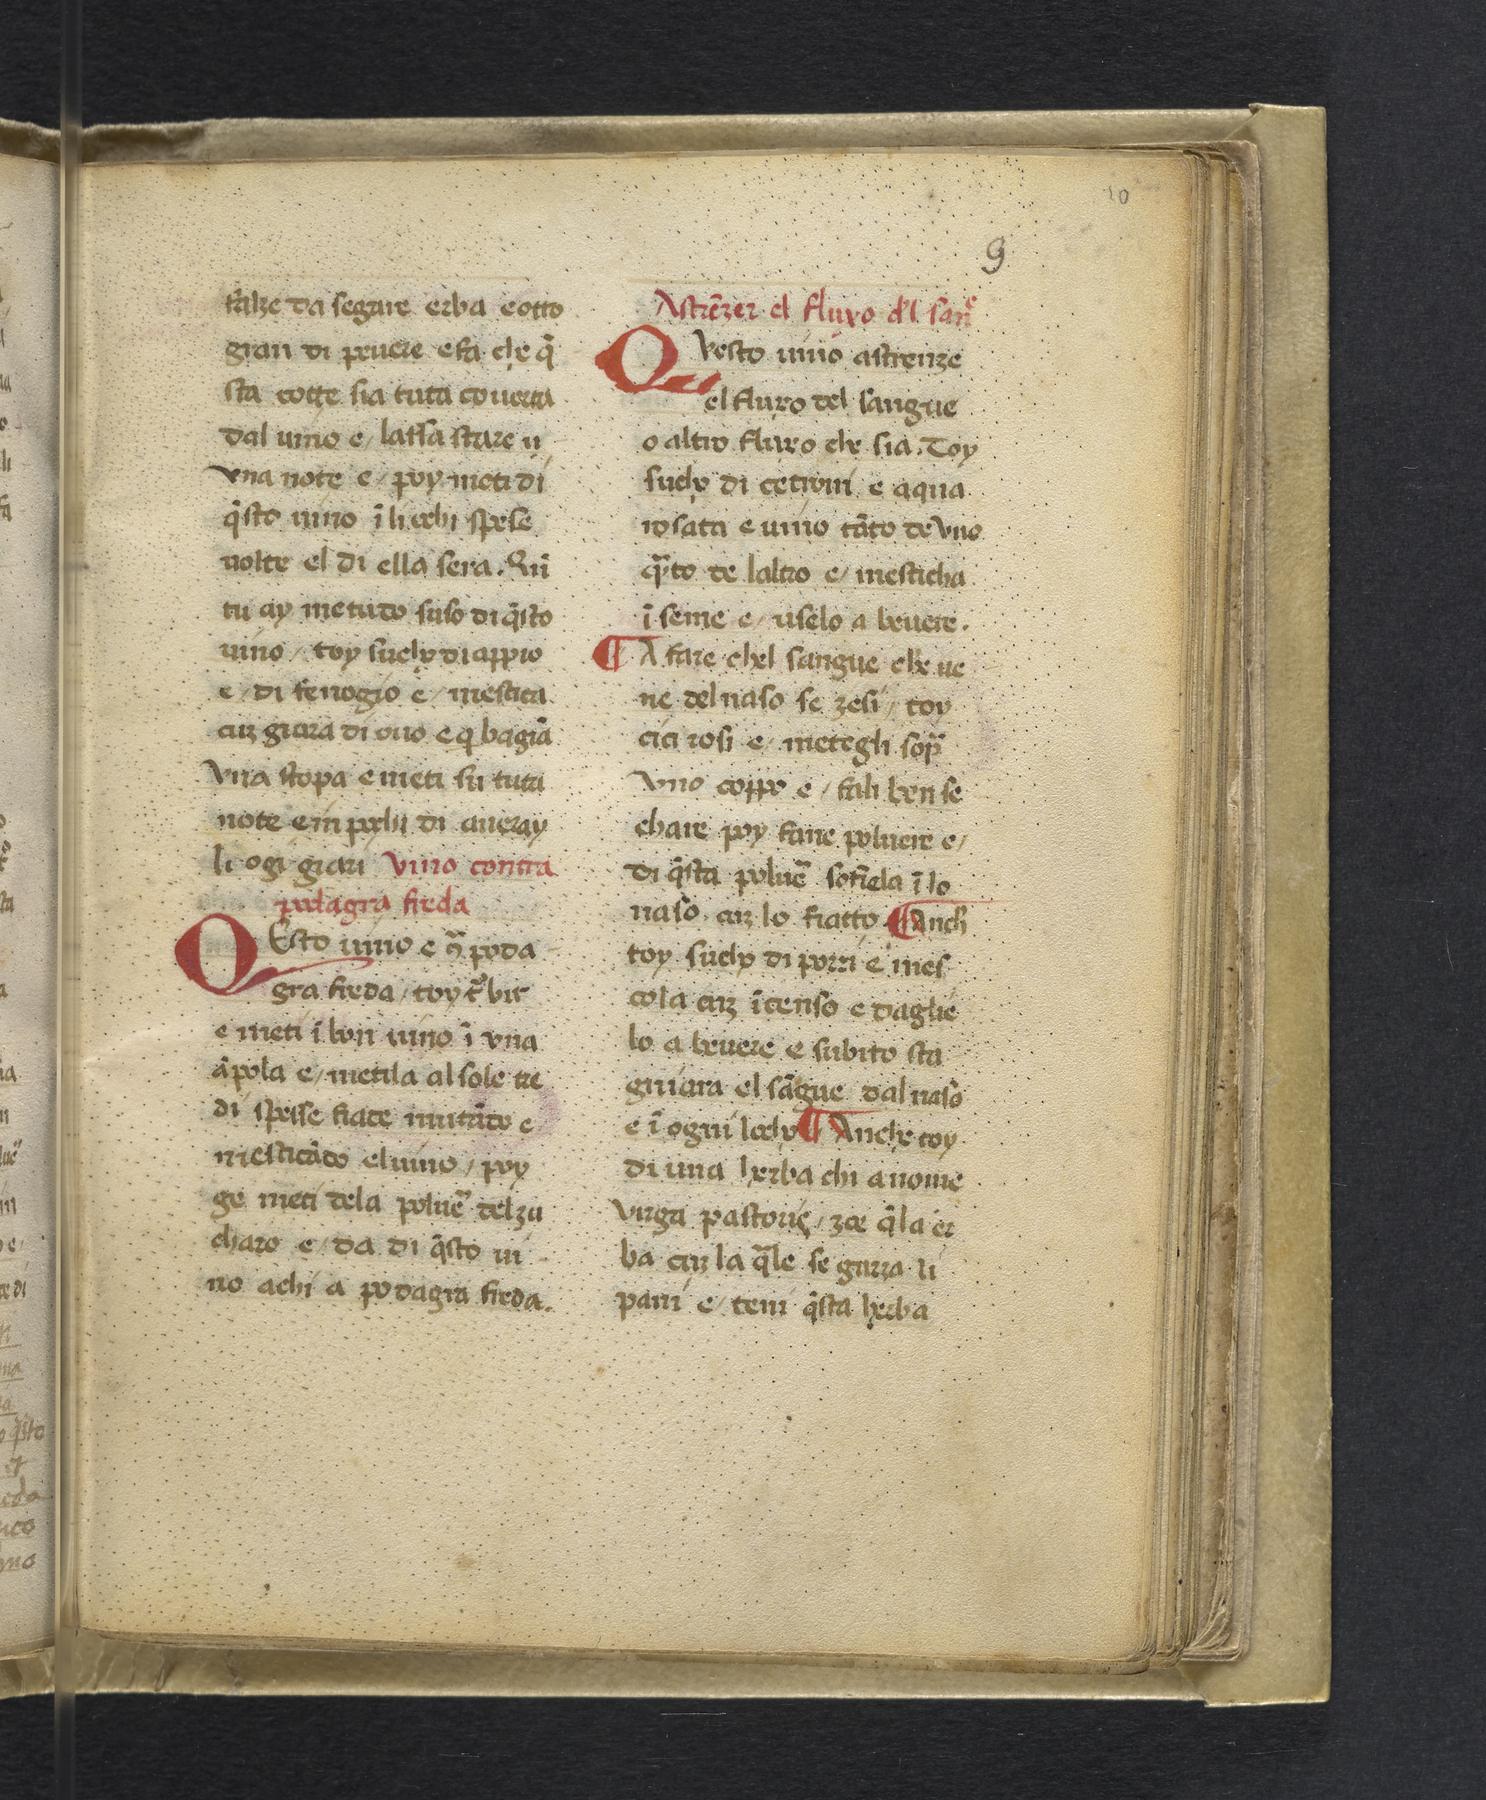 10
9
falze da segare erba e otto
gran di pevere e fa che q̄
sta cotte sia tuta coverta
dal vino e/ lassa stare
vna note e/ poy meti di
q̄sto vino ī li ochi spese
volte el di ella sera.
tu ay metudo suso di q̄sto
vino / toy sucho di appio
e/ di fenogio e/ mestica
cuz giara di ovo e bagīa
vna stopa e meti su tuta
note e in pochi di averay
li ogi giari vino contra
podagra freda
QEsto vino e poda
gra freda / toy
e meti ī bon vino ī vna
āpola e/ metila al sole tre
di spesse fiate mutādo e
mesticādo el vino / poy
ge meti dela polue del zu
charo e/ da di q̄sto vi
no a chi a podagra freda.
Astrēzer el fluxo d'l san
Qvesto vino astrenze
el fluxo del sangue
o altro fluxo che sia. Toy
sucho di cetroni e aqua
rosata e vino tāto de vno
q̄to de laltro e/ mesticha
ī seme e/ uselo a bevere.
¶ A fare chel sangue che ve
ne del naso se zesi / toy
cici rosi e/ metegli sop̄
vno coppo e/ fali ben se
chare poy fane polvere e/
di q̄sta polue sofiela ī lo
naso cuz lo fiatto ¶ Anch
toy sucho di porri e mes
cola cuz īcenso e daglie
lo a bevere e subito sta
gniara el sāgue dal naso
e ī ogni locho ¶ Anche toy
di una herba chi a nome
virga pastoris / zoe q̄la er
ba cuz la q̄le se garza li
pani e/ teni q̄sta herba